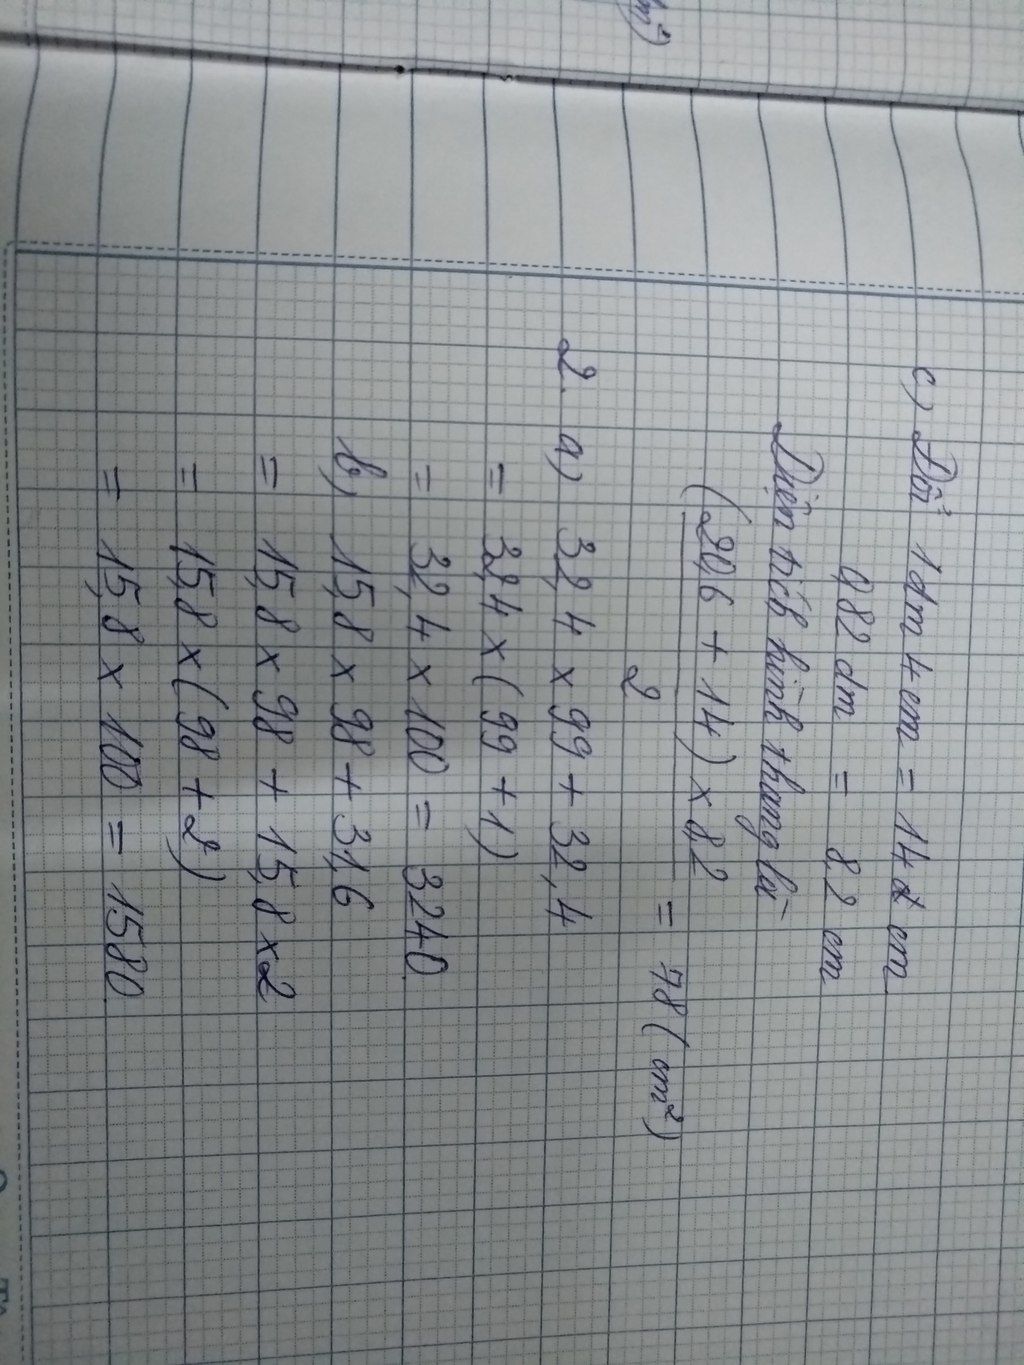 dm²)
c) Đổi 1dm 4cm = 14 cm
0,82 dm = 8,2 cm
Diện tích hình thang là
(20,6 + 14) x 8,2
2
= 78 (cm²)
2. a) 32,4 x 99 + 32,4
= 32,4 x (99 + 1)
= 32,4 x 100 = 3240
b) 15,8 x 98 + 31,6
= 15,8 x 98 + 15,8 x 2
= 15,8 x (98 + 2)
= 15,8 x 100 = 1580